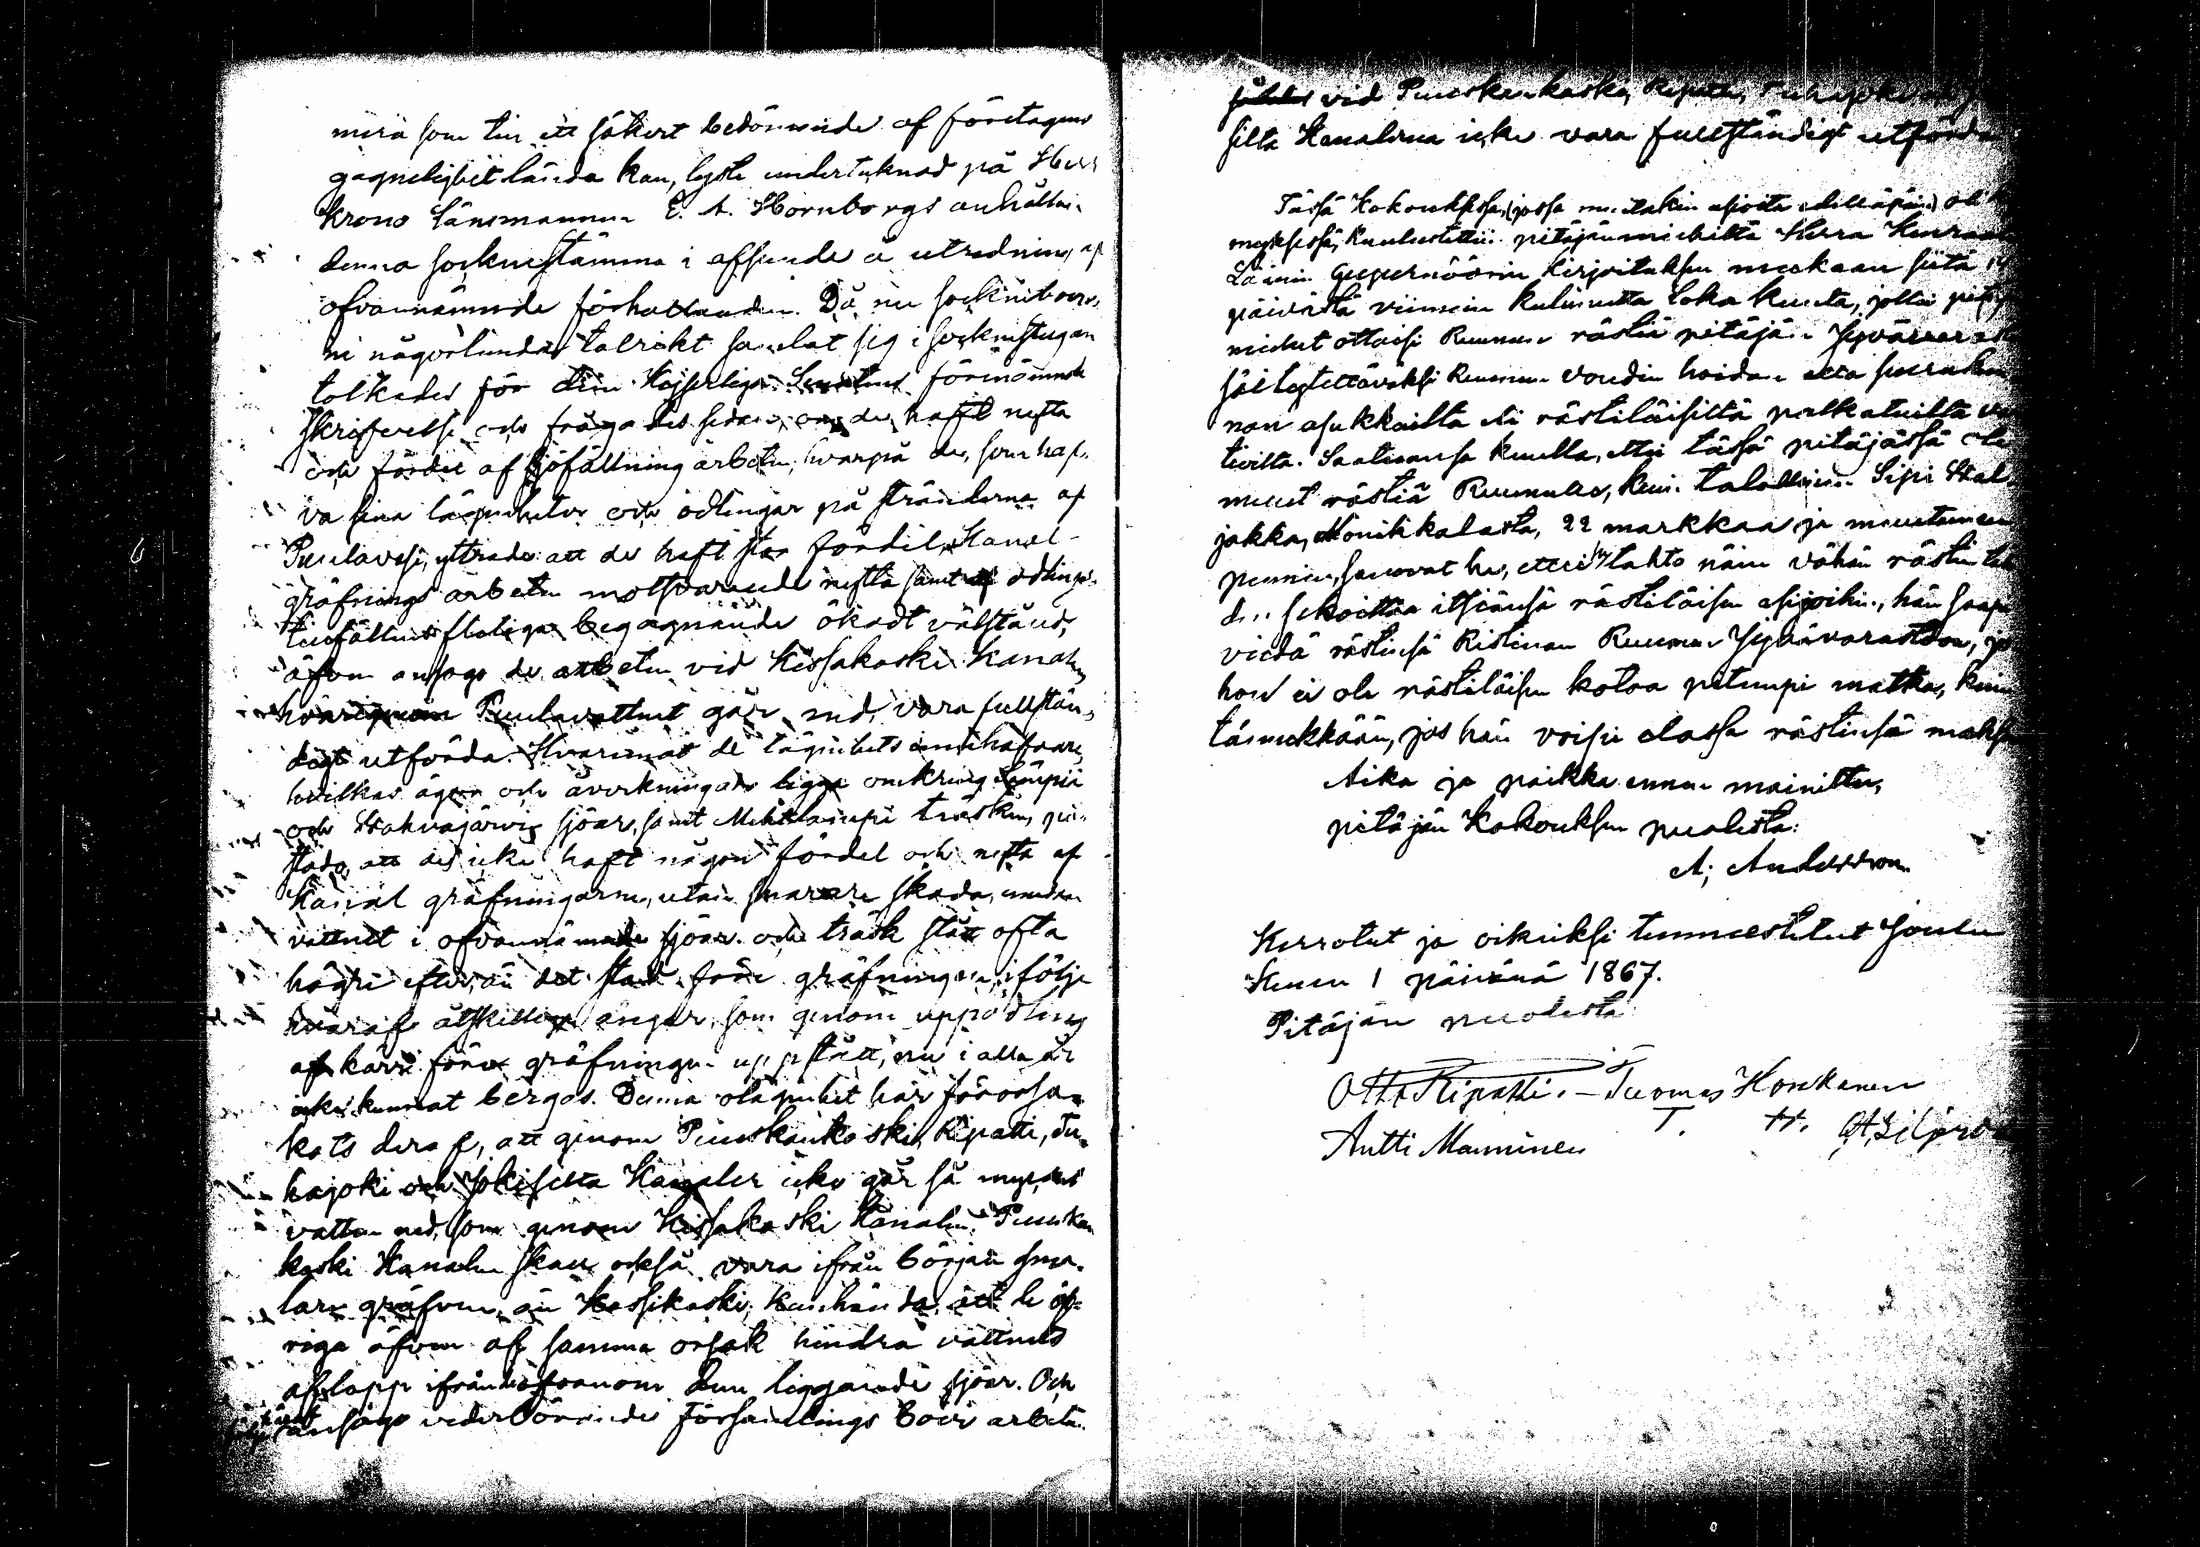 mera som till ett säkert bedömmande af företagens
gagnelighet lända kan, lyste undertecknad på Herr
Krono Länsmannen E. A. Hornborgs anhållan
denna sockenstämma i afseende å utredning af
ofvannämnde förhållanden. Då nu sockneboer
ni någorlunda talrikt samlat sig i sockenstugan
tolkades för dem Kejserliga Senatens förenämnde
skrifvelse och frågades sedan, om de haft nytta
och fördel af sjöfällning arbeten, hvarpå de, som haf-
va sina lägenheter och odlingar på stränderna af
Puulavesi, yttrade att de haft stor fördel, Kanal-
gräfnings arbeten motsvarande nytta samt af odlings
tillfällens flitiga begagnande ökadt välstånd,
äfven ansågo de arbeten vid Kissakoski Kanalen,
hvarigenom Puulavattnet går ned, vara fullstän-
digt utförda. Hvaremot de lägenhets innehafvare,
hvilkas ägor och åverkningar ligga omkring Liimpiä
och Wahvajärvi sjöar, samt Mehtlampi träsken, på-
stodo, att de icke haft någon fördel och nytta af
Kanal gräfningarne, utan snarare skada, medan
vattnet i ofvannämnde sjöar och träsk stått ofta
högre efter, än det stod före gräfningen, i följe
hvaraf åtskilliga ängar, som genom uppodling
af kärr före gräfningen uppstått, nu i alla år
icke kunnat bergas. Denna olägenhet har förorsa-
kats deraf, att genom Puuskankoski, Ripatti, Tu-
hajoki och Jokisilta Kanaler icke går så mycket
vatten ned, som genom Kissakoski Kanalen. Puuskan
koski Kanalen skall också vara ifrån början sma-
lare gräfven, än Kissikoski; Kanhända, att de öf-
riga äfven af samma orsak hindra vattnets
aflopp ifrån de ofvanom dem liggande sjöar. Och
ansågo vederbörande Församlings boer arbeten
vid Puuskankoski, Ripatti, Tuhajoki och Joki
silta Kanalerna icke vara fullständigt utförda
Tässä Kokouksessa, (jossa muitakin asioita edelläpäin) oli k
myksessä, Kuulusteltiin pitäjänmiehiltä Herra Kenraali
Läänin Guvernöörin Kirjoituksen mukaan siitä 14
päivästä viimein kulunutta Loka kuuta, jollei pitäjä
miehet ottaisi Ruunun rästiä pitäjän Jyvävarasto
säilytettäväksi Ruunun Voudin hoidon alla seurakun
nan asukkailta eli rästiläisiltä palkatuilta va
teilta. Saatuansa kuulla, ettei tässä pitäjässä ole
muut rästiä Ruunulle, kuin talollinen Sipi Hal
jakka, Monikkalasta, 22 markkaa ja muutamia
penniä, sanovat he, ettei he tahto näin vähän rästin täh
den sekoittaa itsiänsä rästiläisen asijoihin, hän saapi
viedä rästinsä Ristinan Ruunun Jyvävarastoon, jo
hon ei ole rästiläisen kotoa pitempi matka, kuin
tännekkään, jos hän voisi elossa rästinsä maksa
Aika ja paikka ennen mainittu,
pitäjän Kokouksen puolesta:
A; Andersson
Kerrotut ja oikeiksi tunnustetut Joulu
Kuun 1 päivänä 1867.
Pitäjän puolesta
Otto Ripatti. – Tuomas Honkanen
Antti Manninen T. H.